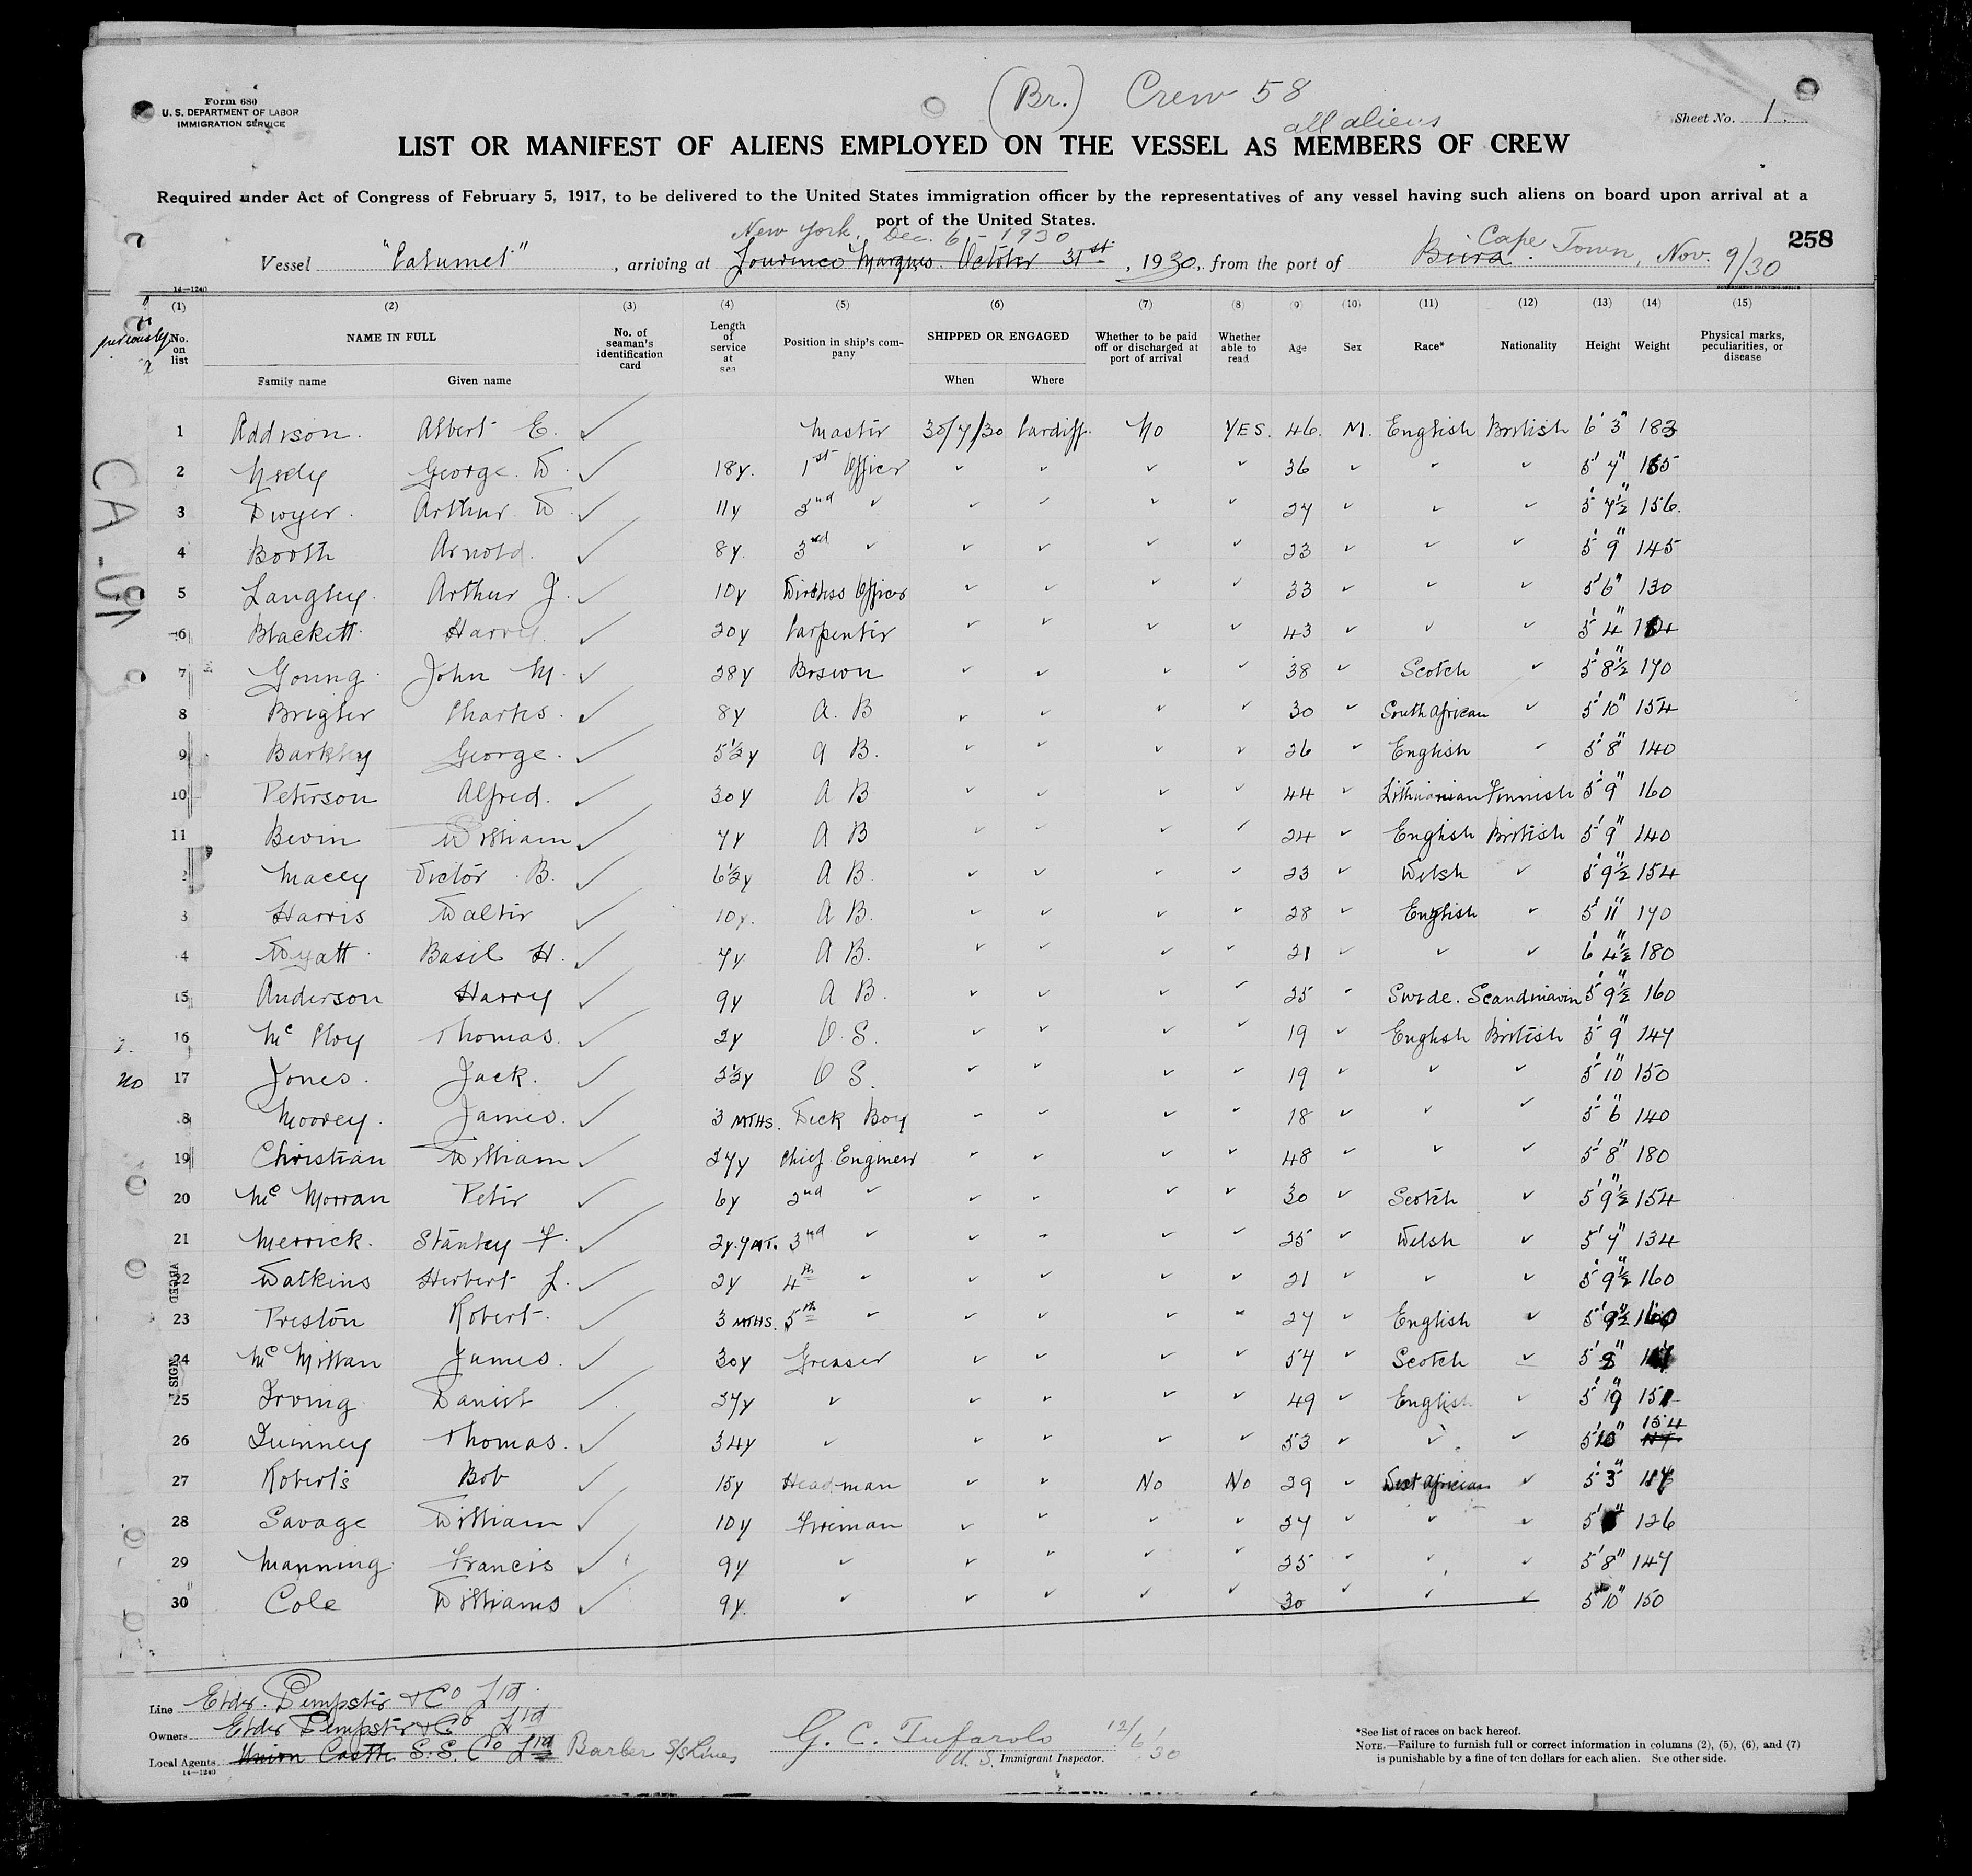 (Br.) Crew 58
all aliens
Form 680
U. S. DEPARTMENT OF LABOR
IMMIGRATION SERVICE
Sheet No. 1.
LIST OR MANIFEST OF ALIENS EMPLOYED ON THE VESSEL AS MEMBERS OF CREW
Required under Act of Congress of February 5, 1917, to be delivered to the United States immigration officer by the representatives of any vessel having such aliens on board upon arrival at a
port of the United States.
New York, Dec. 6 - 1930
258
Vessel "Calumet", arriving at Lourenco Marques. October 31st, 1930, from the port of Beira. Cape Town, Nov. 9/30
14—1240
(1) (2) (3) (4) (5) (6) (7) (8) (9) (10) (11) (12) (13) (14) (15)
No. on list NAME IN FULL No. of seaman's identification card Length of service at sea Position in ship's company SHIPPED OR ENGAGED Whether to be paid off or discharged at port of arrival Whether able to read Age Sex Race* Nationality Height Weight Physical marks, peculiarities, or disease
Family name Given name When Where
1 Addison. Albert E. ✓ Master 30/7/30 Cardiff. No YES. 46. M. English British 6' 3" 183
2 George. W. ✓ 18y. 1st Officer ✓ ✓ ✓ ✓ 36 ✓ ✓ ✓ 5' 7" 165
3 Dwyer. Arthur W. ✓ 11y 2nd ✓ ✓ ✓ ✓ ✓ 27 ✓ ✓ ✓ 5' 7½" 156.
4 Booth Arnold. ✓ 8y. 3rd ✓ ✓ ✓ ✓ ✓ 23 ✓ ✓ ✓ 5' 9" 145
5 Langley. Arthur J. ✓ 10y Wireless Officer ✓ ✓ ✓ ✓ 33 ✓ ✓ ✓ 5' 6" 130
6 Blackett. Harry. ✓ 20y Carpenter ✓ ✓ ✓ ✓ 43 ✓ ✓ ✓ 5' 4"
7 Young. John M. ✓ 28y Boswn ✓ ✓ ✓ ✓ 38 ✓ Scotch ✓ 5' 8½" 170
8 Brigter Charles. ✓ 8y A. B ✓ ✓ ✓ ✓ 30 ✓ South African ✓ 5' 10" 154
9 Barkley George. ✓ 5½y A B. ✓ ✓ ✓ ✓ 26 ✓ English ✓ 5' 8" 140
10 Peterson Alfred. ✓ 30y A B ✓ ✓ ✓ ✓ 44 ✓ Lithuanian Finnish 5' 9" 160
11 Bevin William ✓ 7y A B ✓ ✓ ✓ ✓ 24 ✓ English British 5' 9" 140
2 Macey Victor B. ✓ 6½y A B. ✓ ✓ ✓ ✓ 23 ✓ Welsh ✓ 5' 9½" 154
3 Harris Walter ✓ 10y. A B. ✓ ✓ ✓ ✓ 28 ✓ English ✓ 5' 11" 170
4 Wyatt. Basil H. ✓ 7y A B. ✓ ✓ ✓ ✓ 21 ✓ ✓ ✓ 6' 4½" 180
15 Anderson Harry ✓ 9y A B. ✓ ✓ ✓ ✓ 25 ✓ Swede. Scandinavin 5' 9½" 160
16 Mc Cloy Thomas. ✓ 2y O. S. ✓ ✓ ✓ ✓ 19 ✓ English British 5' 9" 147
no 17 Jones. Jack. ✓ 2½y O S. ✓ ✓ ✓ ✓ 19 ✓ ✓ ✓ 5' 10" 150
8 Moorey. James. ✓ 3 MTHS. Deck Boy ✓ ✓ ✓ ✓ 18 ✓ ✓ ✓ 5' 6" 140
19 Christian William ✓ 27y Chief Engineer ✓ ✓ ✓ ✓ 48 ✓ ✓ ✓ 5' 8" 180
20 Mc Morran Peter ✓ 6y 2nd ✓ ✓ ✓ ✓ ✓ 30 ✓ Scotch ✓ 5' 9½" 154
21 Merrick. Stanley F. ✓ 2y.7MT. 3rd ✓ ✓ ✓ ✓ ✓ 25 ✓ Welsh ✓ 5' 7" 134
22 Watkins Herbert L. ✓ 2y 4th ✓ ✓ ✓ ✓ ✓ 21 ✓ ✓ ✓ 5' 9½" 160
23 Preston Robert. ✓ 3 MTHS. 5th ✓ ✓ ✓ ✓ ✓ 27 ✓ English ✓ 5' 9½" 160
24 Mc Millan James. ✓ 30y Greaser ✓ ✓ ✓ ✓ 57 ✓ Scotch ✓ 5' 8"
25 Irving Daniel ✓ 27y ✓ ✓ ✓ ✓ ✓ 49 ✓ English ✓ 151
26 Quinney Thomas. ✓ 34y ✓ ✓ ✓ ✓ ✓ 53 ✓ ✓ ✓ 5' 10" 154
27 Roberts Bob ✓ 15y Headman ✓ ✓ No No 29 ✓ West African ✓ 5' 3"
28 Savage William ✓ 10y Fireman ✓ ✓ ✓ ✓ 27 ✓ ✓ ✓ 5' 126
29 Manning Francis ✓ 9y ✓ ✓ ✓ ✓ ✓ 25 ✓ ✓ ✓ 5' 8" 147
30 Cole Williams ✓ 9y. ✓ ✓ ✓ ✓ ✓ 30 ✓ ✓ ✓ 5' 10" 150
Line Elder Dempster & Co Ltd.
Owners Elder Dempster & Co Ltd
Local Agents Union Castle S. S. Co Ltd Barber S/S Lines
14—1240
G. C. Tufarolo 12/6/30
U. S. Immigrant Inspector.
*See list of races on back hereof.
NOTE.—Failure to furnish full or correct information in columns (2), (5), (6), and (7)
is punishable by a fine of ten dollars for each alien. See other side.